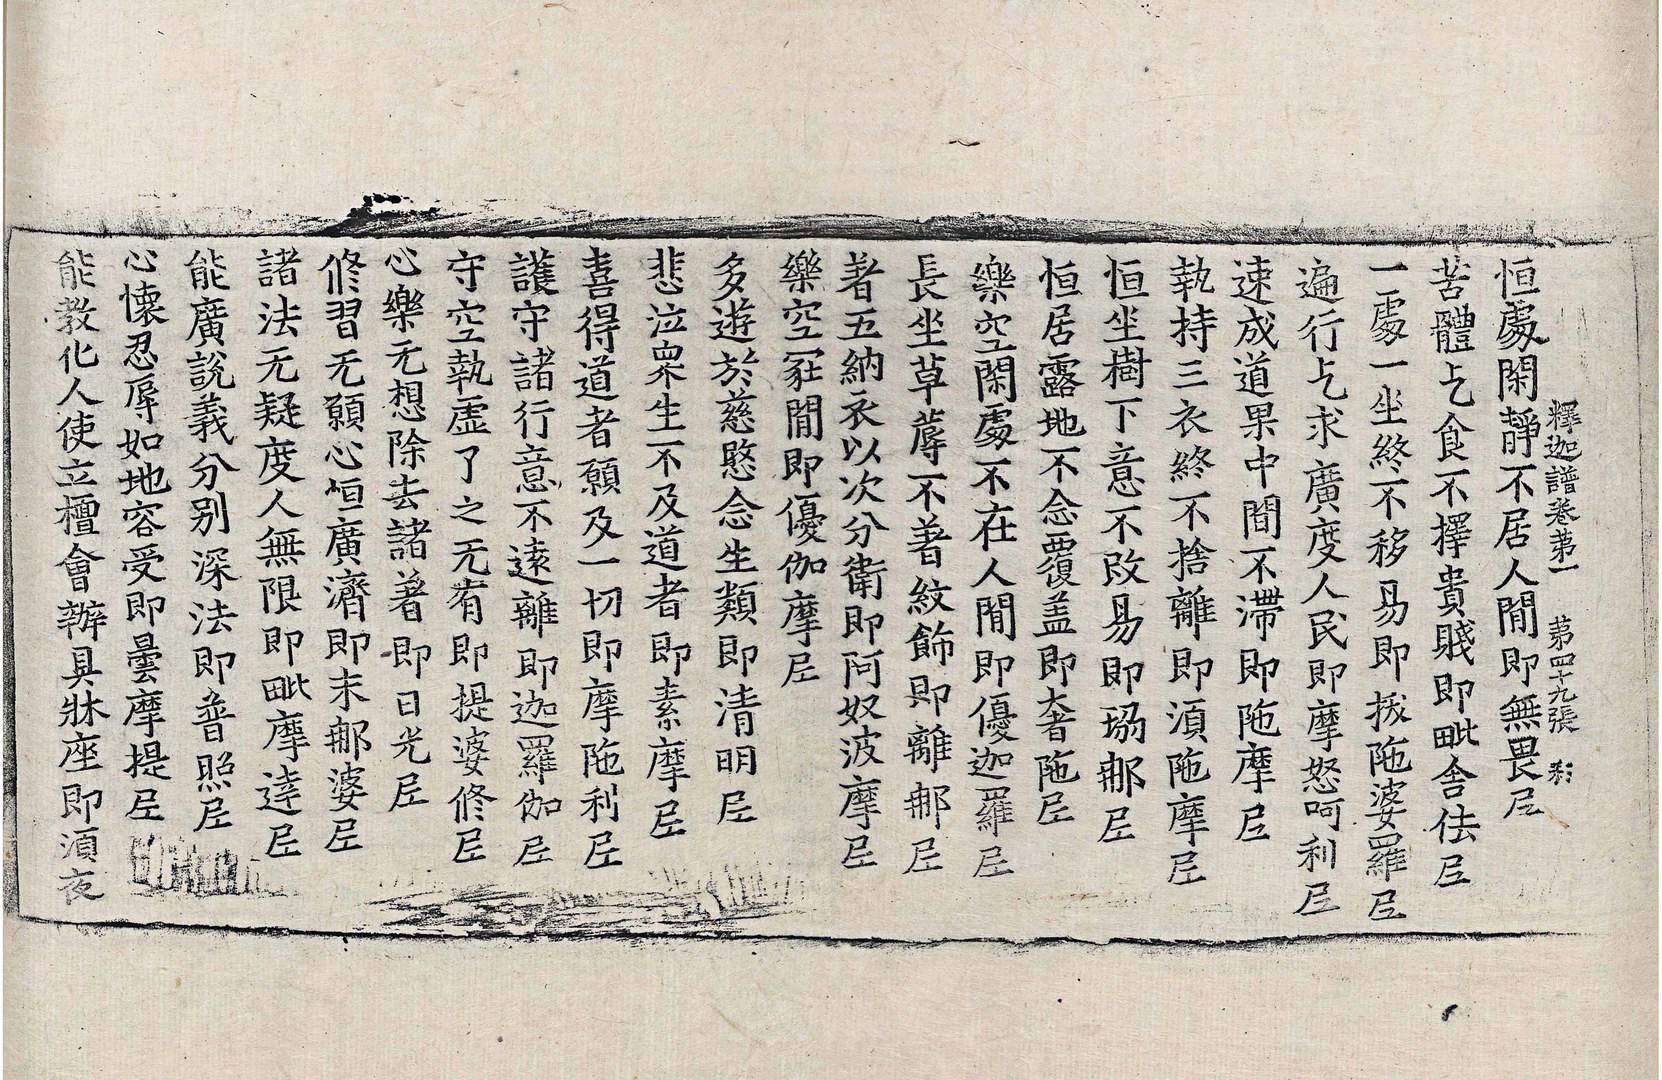 釋迦譜卷苐一　苐四十九張
恒處閑靜不居人閒即無畏尼
苦體乞食不擇貴賤即毗舎佉尼
一處一坐終不移易即拔陁婆羅尼
遍行乞求廣度人民即摩怒呵利尼
速成道果中間不滯即陁摩尼
執持三衣終不捨離即湏陁摩尼
恒坐樹下意不改易即珕𨙻尼
恒居露地不念覆盖即奢陁尼
樂空閑處不在人閒即優迦羅尼
長坐草蓐不著紋飾即離𨙻尼
著五納衣以次分衛即阿奴波摩尼
樂空冡閒即優伽摩尼
多遊於慈愍念生類即清明尼
悲泣衆生不及道者即素摩尼
喜得道者願及一切即摩陁利尼
護守諸行意不遠離即迦羅伽尼
守空執虛了之无有即提婆修尼
心樂无想除去諸著即日光尼
修習无願心恒廣濟即末𨙻婆尼
諸法无疑度人無限即毗摩達尼
能廣說義分別深法即普照尼
心懷忍辱如地容受即曇摩提尼
能教化人使立檀會辦具牀座即湏夜